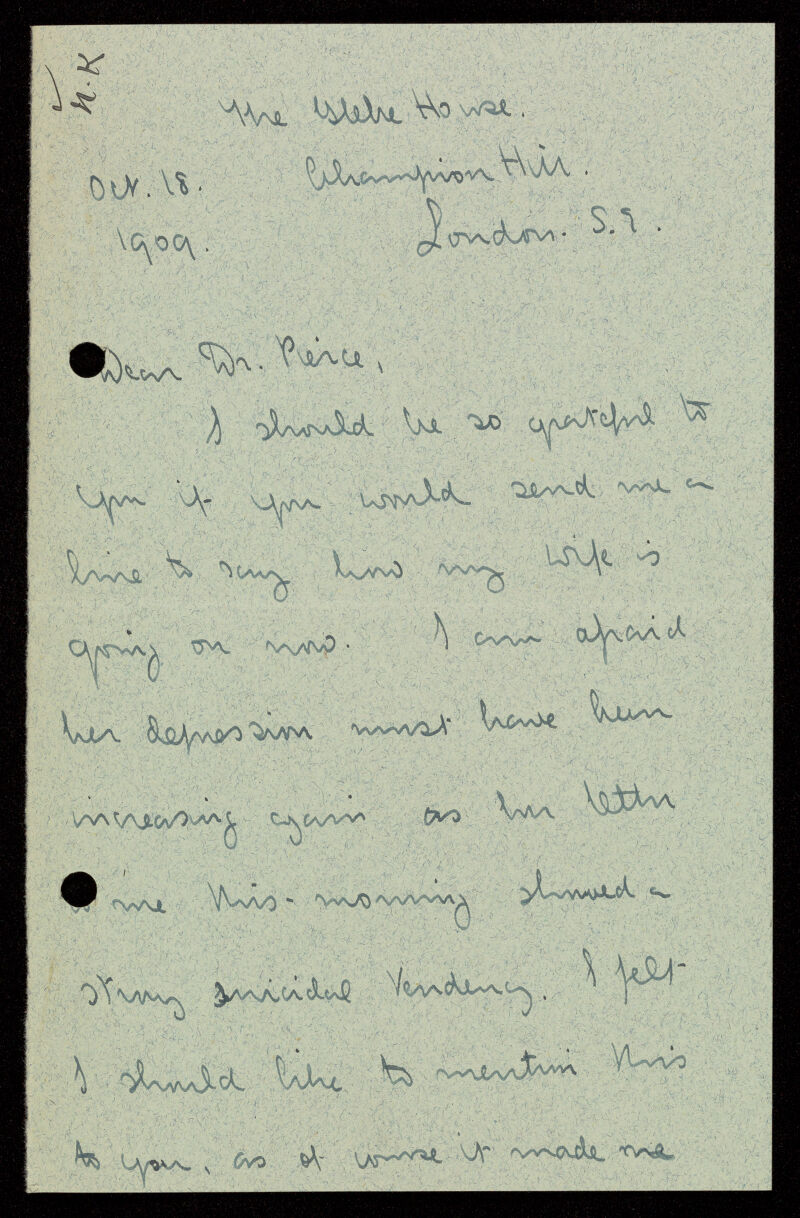 N.K
The Glebe House.
Oct. 18. Champion Hill.
1909. London. S.E.
Dear Dr. Pierce,
I should be so grateful to
you if you would send me a
line to say how my wife is
going on now. I am afraid
her depression must have been
increasing again as her letter
to me this morning showed a
strong suicidal tendency. I felt
I should like to mention this
to you, as of course it made me